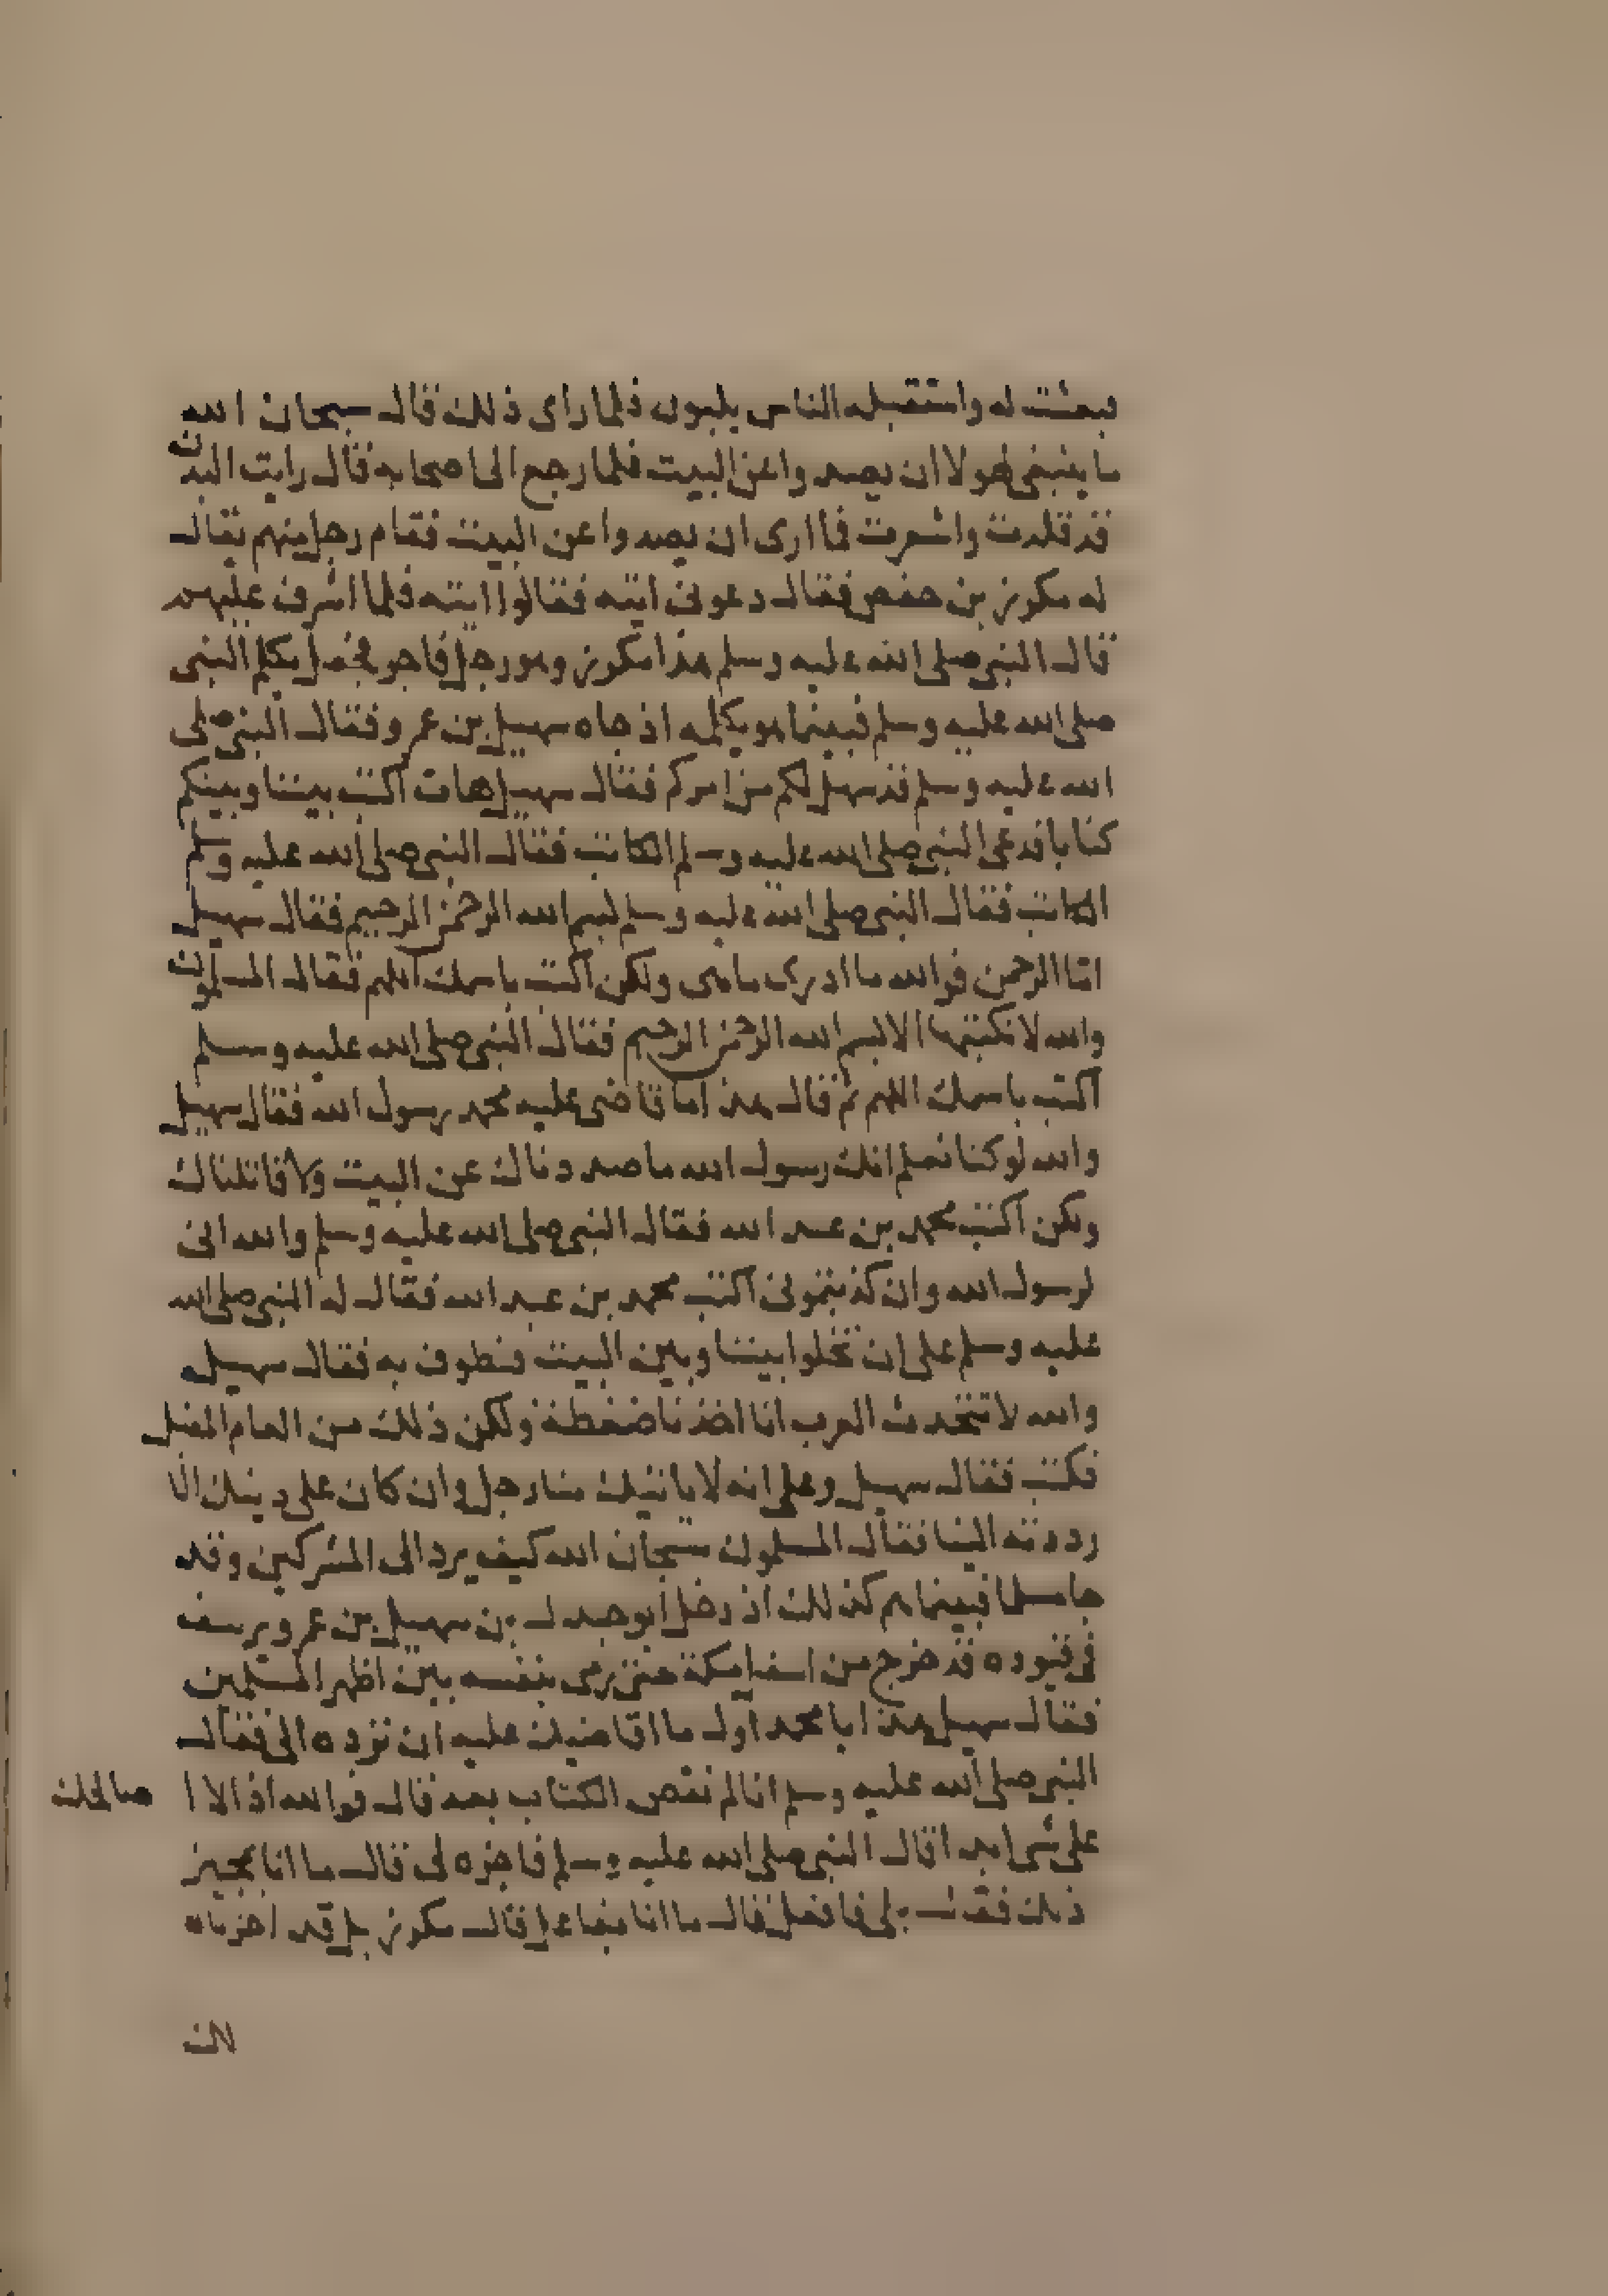 فبعثت له واستقبله الناس يلبون فلما راى ذلك قال سبحان الله
ما ينبغي لهولا ان يصدوا عن البيت فلما رجع الى اصحابه قال رايت البدن
قد قلدت واشعرت فما ارى ان يصدوا عن البيت فقام رجل منهم يقال
له مكرز بن حفص فقال دعوني اتيه فقالوا ائته فلما اشرف عليهم
قال النبي صلى الله عليه وسلم هذا مكرز وهو رجل فاجر فجعل يكلم النبي
صلى الله عليه وسلم فبينما هو يكلمه اذ جاه سهيل بن عمرو فقال النبي صلى
الله عليه وسلم قد سهل لكم من امركم فقال سهيل هات اكتب بيننا وبينكم
كتابا فدعى النبي صلى الله عليه وسلم الكاتب فقال النبي صلى الله عليه وسلم
الكاتب فقال النبي صلى الله عليه وسلم بسم الله الرحمن الرحيم فقال سهيل
اما الرحمن فوالله ما ادري ما هي ولكن اكتب باسمك اللهم فقال المسلمون
والله لا نكتبها الا بسم الله الرحمن الرحيم فقال النبي صلى الله عليه وسلم
اكتب باسمك اللهم ثم قال هذا ما قاضى عليه محمد رسول الله فقال سهيل
والله لو كنا نعلم انك رسول الله ما صددناك عن البيت ولا قاتلناك
ولكن اكتب محمد بن عبد الله فقال النبي صلى الله عليه وسلم والله اني
لرسول الله وان كذبتموني اكتب محمد بن عبد الله فقال له النبي صلى الله
عليه وسلم على ان تخلوا بيننا وبين البيت فنطوف به فقال سهيل
والله لا تتحدث العرب انا اخذنا ضغطة ولكن ذلك من العام المقبل
فكتب فقال سهيل وعلى انه لا ياتيك منا رجل وان كان على دينك الا
رددته الينا فقال المسلمون سبحان الله كيف يرد الى المشركين وقد
جا مسلما فبينما هم كذلك اذ دخل ابو جندل بن سهيل بن عمرو يرسف
في قيوده قد خرج من اسفل مكة حتى رمى بنفسه بين اظهر المسلمين
فقال سهيل هذا يا محمد اول ما اقاضيك عليه ان ترده الي فقال
النبي صلى الله عليه وسلم انا لم نقض الكتاب بعد قال فوالله اذا لا ا
صالحك
على شي ابدا قال النبي صلى الله عليه وسلم فاجزه لي قال ما انا بمجيز
ذلك فقال بلى فافعل قال ما انا بفاعل قال مكرز بل قد اجزناه
لك